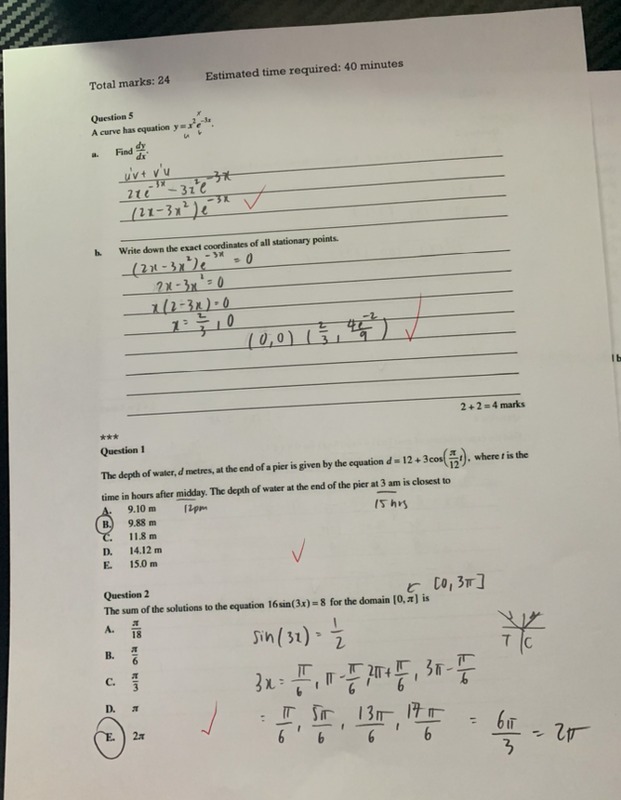 Total marks: 24 Estimated time required: 40 minutes
Question 5
x
A curve has equation y = x²e⁻³ˣ.
u v
a. Find dy/dx.
u'v + v'u
2xe⁻³ˣ − 3x²e⁻³ˣ
(2x − 3x²)e⁻³ˣ ✓
b. Write down the exact coordinates of all stationary points.
(2x − 3x²)e⁻³ˣ = 0
2x − 3x² = 0
x(2 − 3x) = 0
x = 2/3, 0
(0,0) (2/3, 4e⁻²/9) ✓
2 + 2 = 4 marks
***
Question 1
The depth of water, d metres, at the end of a pier is given by the equation d = 12 + 3cos(π/12 t), where t is the
time in hours after midday. The depth of water at the end of the pier at 3 am is closest to
12pm 15 hrs
A. 9.10 m
B. 9.88 m
C. 11.8 m
D. 14.12 m
E. 15.0 m
✓
Question 2
[0, 3π]
The sum of the solutions to the equation 16sin(3x) = 8 for the domain [0, π] is
A. π/18
B. π/6
C. π/3
D. π
E. 2π
sin(3x) = 1/2
T C
3x = π/6, π − π/6, 2π + π/6, 3π − π/6
= π/6, 5π/6, 13π/6, 17π/6 = 6π/3 = 2π
✓